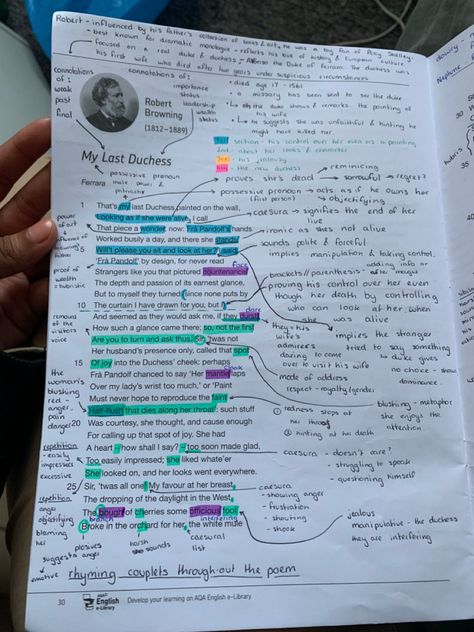 Robert - influenced by his father's collection of books & art, he was a big fan of Percy Shelley.
- best known for dramatic monologue - reflects his love of history & European culture
focused on a real duke & duchess - Alfonso the Duke of Ferrara. The duchess was
his first wife who died after two years under suspicious circumstances
connotations of:
weak
past
final
connotations of:
importance
status
leadership
wealth
status
Robert
Browning
(1812–1889)
• died age 17 - 1561
a missary has been sent to see the duke
the duke shows & remarks the painting of his wife
he suggests she was unfaithful & hinting he might have killed her.
section - his control over her even as a painting
2nd - about her looks & character
his jealousy
the new duchess
My Last Duchess
possessive pronoun
make power & patriachy
Ferrara
proves she's dead
reminicing
sorrowful → regret?
possessive pronoun → acts as if he owns her
(first person)
objectifying
1 That's my last Duchess painted on the wall,
Looking as if she were alive. I call
That piece a wonder, now: Frà Pandolf's hands
Worked busily a day, and there she stands.
5 Will't please you sit and look at her? I said
'Frà Pandolf' by design, for never read
Strangers like you that pictured countenance,
The depth and passion of its earnest glance,
But to myself they turned (since none puts by
10 The curtain I have drawn for you, but I)
And seemed as they would ask me, if they durst,
How such a glance came there; so, not the first
Are you to turn and ask thus. Sir, 'twas not
Her husband's presence only, called that spot
15 Of joy into the Duchess' cheek: perhaps
Frà Pandolf chanced to say 'Her mantle laps
Over my lady's wrist too much,' or 'Paint
Must never hope to reproduce the faint
Half-flush that dies along her throat': such stuff
20 Was courtesy, she thought, and cause enough
For calling up that spot of joy. She had
A heart – how shall I say? – too soon made glad,
Too easily impressed; she liked whate'er
She looked on, and her looks went everywhere.
25 Sir, 'twas all one! My favour at her breast,
The dropping of the daylight in the West,
The bough of cherries some officious fool
Broke in the orchard for her, the white mule
power of art
proof of wealth
removal of the visitors voice
the woman's blushing
red -
anger,
pain
danger
repetition
- easily impressed
excessive
repetition
anger
objectifying
blaming her
face
dare
cloak
branch
interfering
caesura → signifies the end of her live
ironic as she's not alive
sounds polite & forceful
implies manipulation & taking control
brackets // parenthesis - adding info or after image
proving his control over her even though her death by controlling who can look at her when she was alive
they = his wife's admirers
daring to come over to visit his wife
implies the stranger tried to say something
duke gives no choice - show dominance.
mode of address
respect - royalty/gender
blushing - metaphor
she enjoys the attention
① redness stops at her throat
② hinting at her death
caesura - doesn't care?
- struggling to speak
- questioning himself
caesura
- showing anger
- frustration
- shouting
- shock
jealous
manipulative - the duchess
they are interfering
plosives
suggests anger
harsh
she sounds
caesural list
emotive
rhyming couplets through-out the poem
30
AQA
English
e-Library
Develop your learning on AQA English e-Library
dowry
Neptune
35